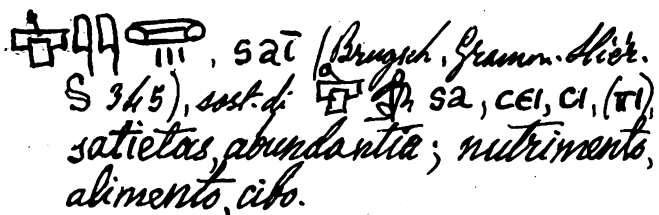 , saī (Brugsch, Gramm. Hiér.
§ 345), sost. di sa, ⲥⲉⲓ, ⲥⲓ, (ⲧⲓ),
satietas, abundantia; nutrimento,
alimento, cibo.